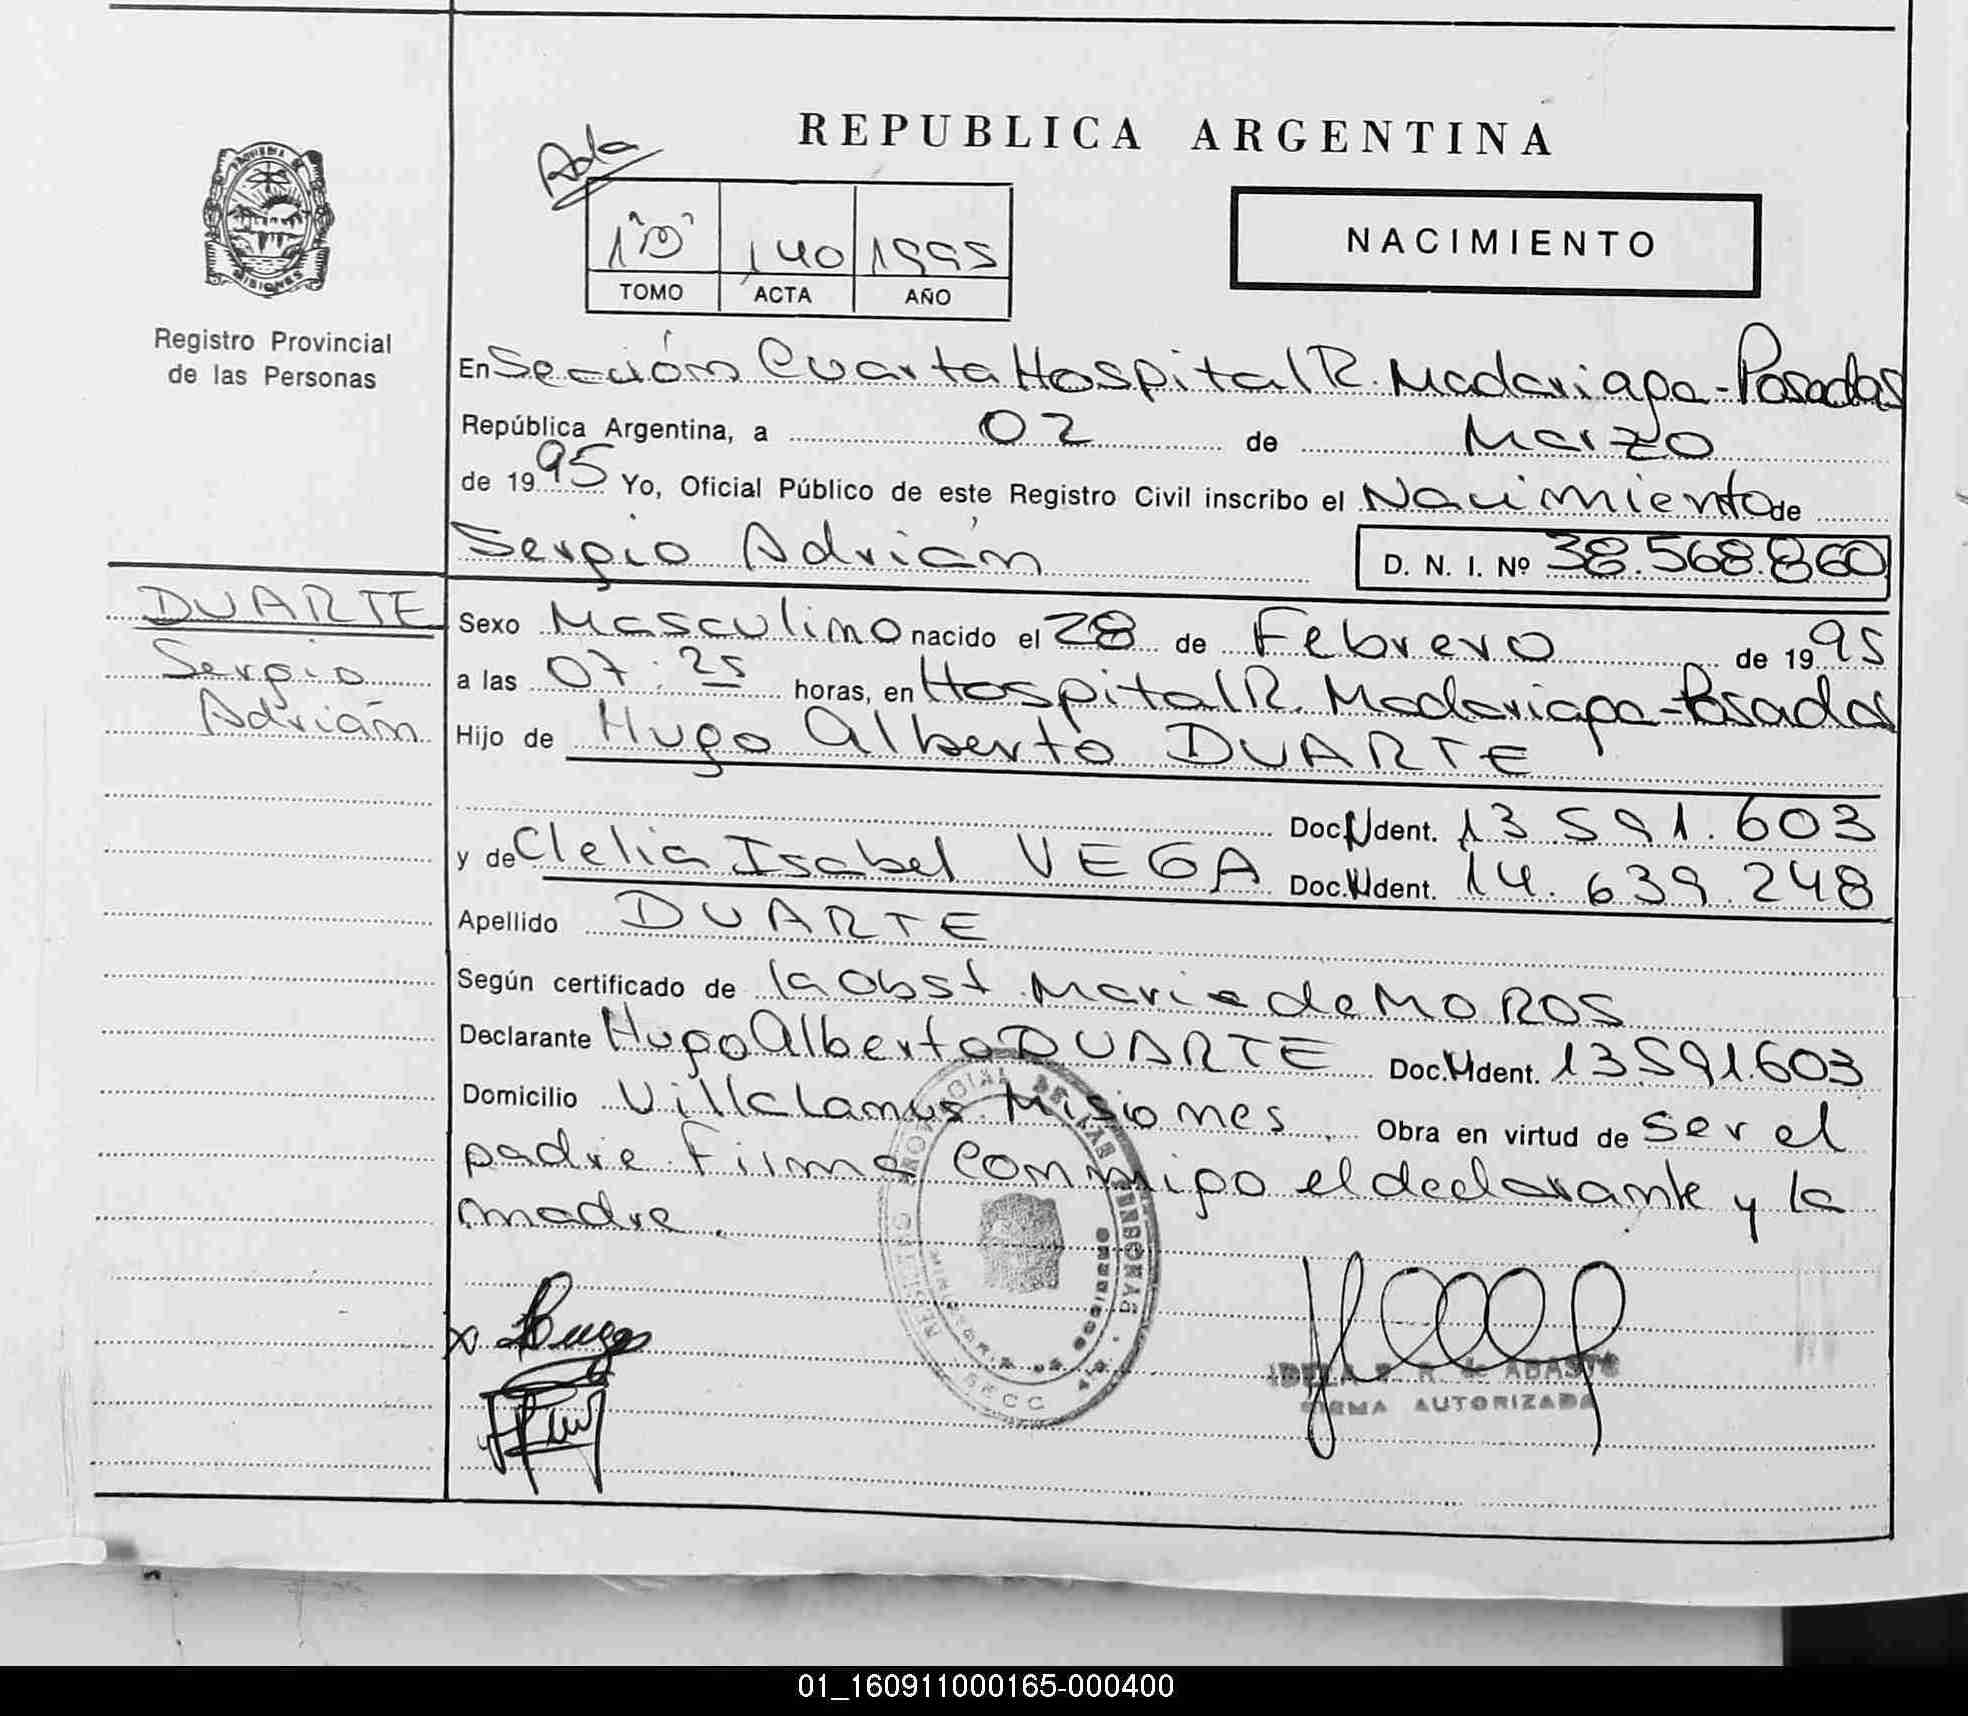 REPUBLICA ARGENTINA
Ada
140 1995
TOMO ACTA AÑO
NACIMIENTO
PROVINCIA DE
MISIONES
Registro Provincial
de las Personas
En Sección Cuarta Hospital R. Madariaga - Posadas
República Argentina, a 02 de Marzo
de 1995 Yo, Oficial Público de este Registro Civil inscribo el Nacimiento de
Sergio Adrián D. N. I. Nº 38.568.860
DUARTE
Sergio
Adrián
Sexo Masculino nacido el 28 de Febrero de 1995
a las 07:25 horas, en Hospital R. Madariaga - Posadas
Hijo de Hugo Alberto DUARTE
Doc. Ident. 13.591.603
y de Clelia Isabel VEGA Doc. Ident. 14.639.248
Apellido DUARTE
Según certificado de la Obst. Maria de MOROS
Declarante Hugo Alberto DUARTE Doc. Ident. 13.591.603
Domicilio Villalanus Misiones. Obra en virtud de ser el
padre. Firma conmigo el declarante y la
madre.
REGISTRO PROVINCIAL DE LAS PERSONAS
R. de ABASTO
FIRMA AUTORIZADA
01_160911000165-000400